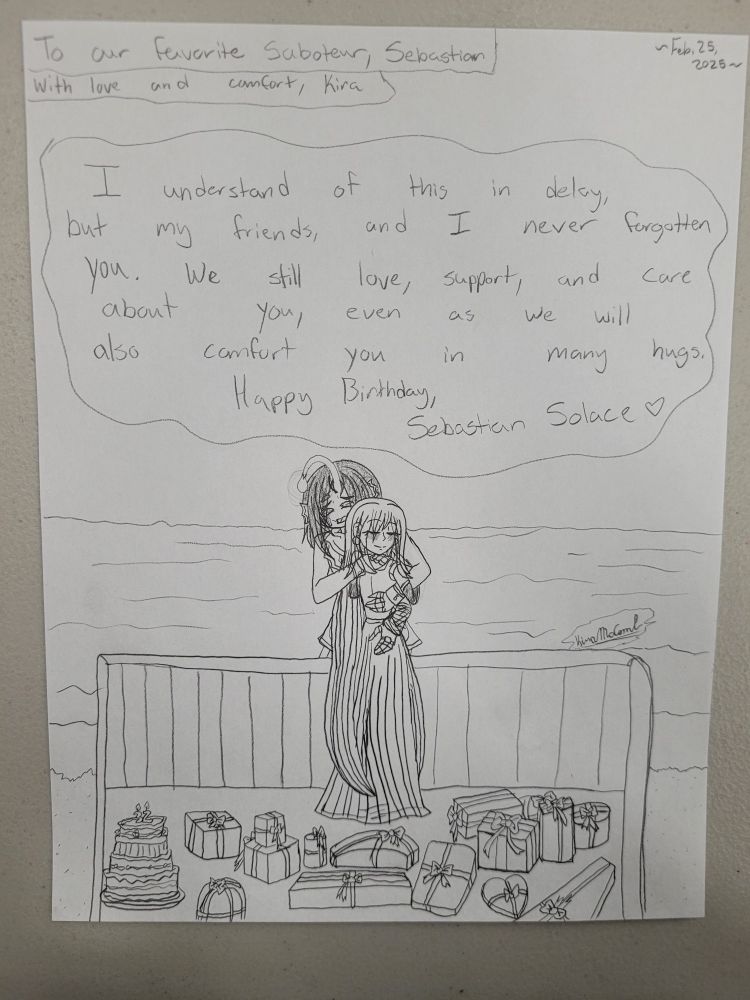 To our favorite Saboteur, Sebastian
With love and comfort, Kira
~Feb. 25,
2025~
I understand of this in delay,
but my friends, and I never forgotten
you. We still love, support, and care
about you, even as we will
also comfort you in many hugs.
Happy Birthday,
Sebastian Solace ♡